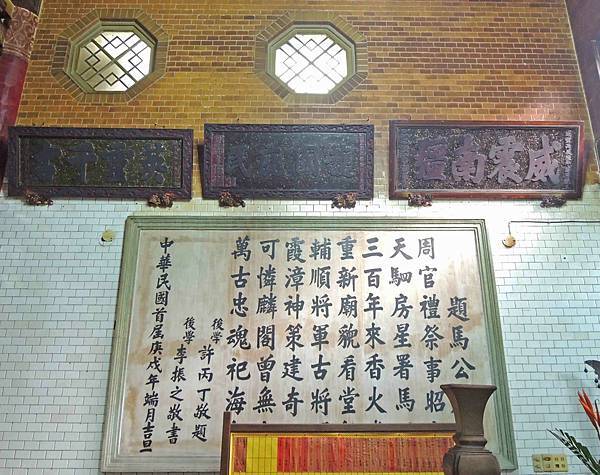 威震南
英靈千古
題馬公
周官禮祭事昭
天駟房星署馬
三百年來香火
重新廟貌看堂
輔順將軍古將
霞漳神策建奇
可憐麟閣曾無
萬古忠魂祀海
後學 許丙丁敬題
後學 李振之敬書
中華民國首屆庚戌年端月吉旦